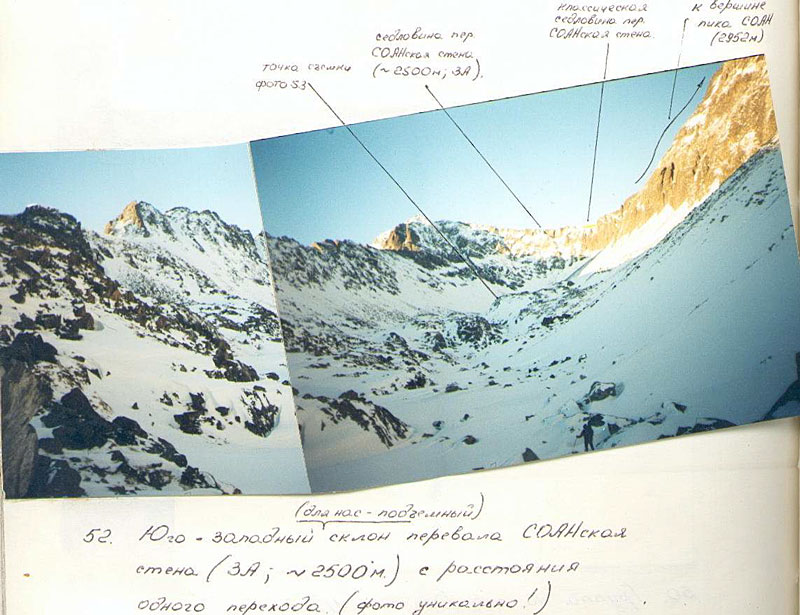 классическая
седловина пер.
СОАНская стена.
к вершине
пика СОАН
(2952м)
седловина пер.
СОАНская стена
(~2500м; 3А).
точка съемки
фото 53
(для нас - подъемный)
52. Юго-западный склон перевала СОАНская
стена (3А; ~2500м.) с расстояния
одного перехода. (фото уникально!)